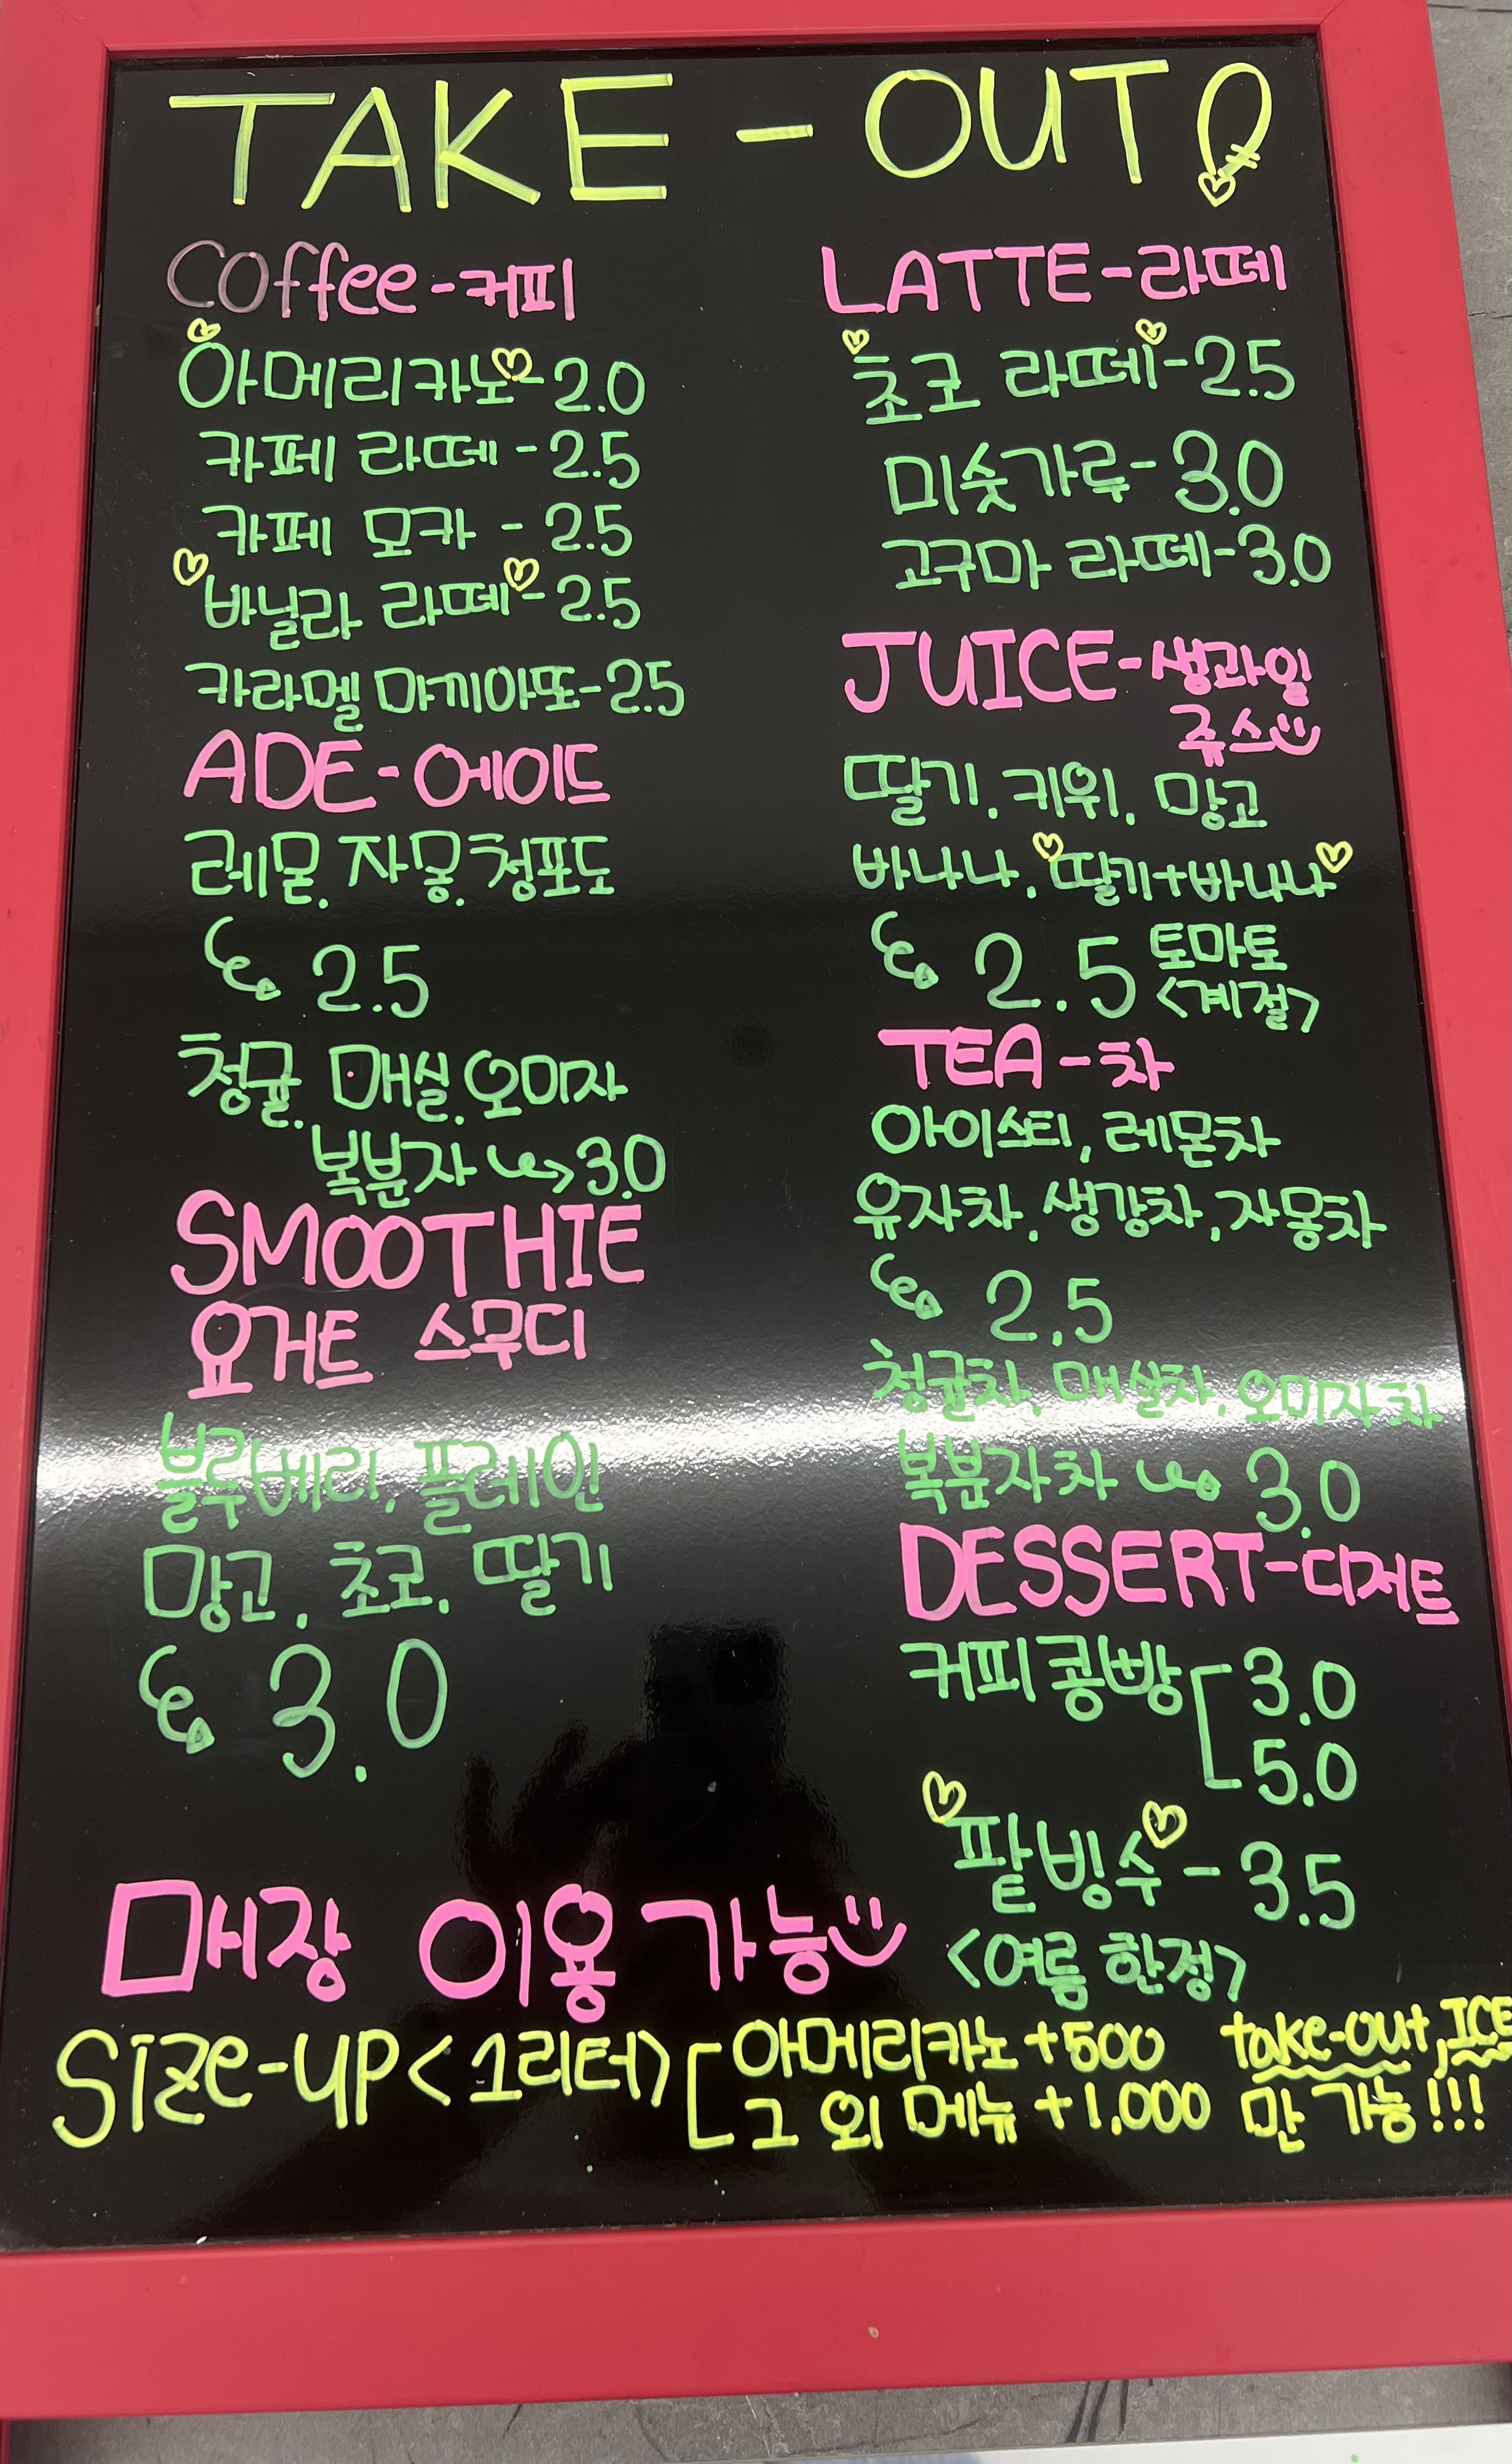 TAKE - OUT
Coffee - 커피
아메리카노 - 2.0
카페 라떼 - 2.5
카페 모카 - 2.5
바닐라 라떼 - 2.5
카라멜 마끼아또 - 2.5
ADE - 에이드
레몬, 자몽, 청포도
2.5
청귤, 매실, 오미자
복분자 → 3.0
SMOOTHIE
요거트 스무디
블루베리, 플레인
망고, 초코, 딸기
3.0
LATTE - 라떼
초코 라떼 - 2.5
미숫가루 - 3.0
고구마 라떼 - 3.0
JUICE - 생과일
쥬스
딸기, 키위, 망고
바나나, 딸기+바나나
2.5 토마토
<계절>
TEA - 차
아이스티, 레몬차
유자차, 생강차, 자몽차
2.5
청귤차, 매실차, 오미자차
복분자차 → 3.0
DESSERT - 디저트
커피콩빵 3.0
5.0
팥빙수 - 3.5
<여름 한정>
매장 이용 가능
Size-up <1리터> 아메리카노 +500 take-out, ICE
그 외 메뉴 +1,000 만 가능!!!